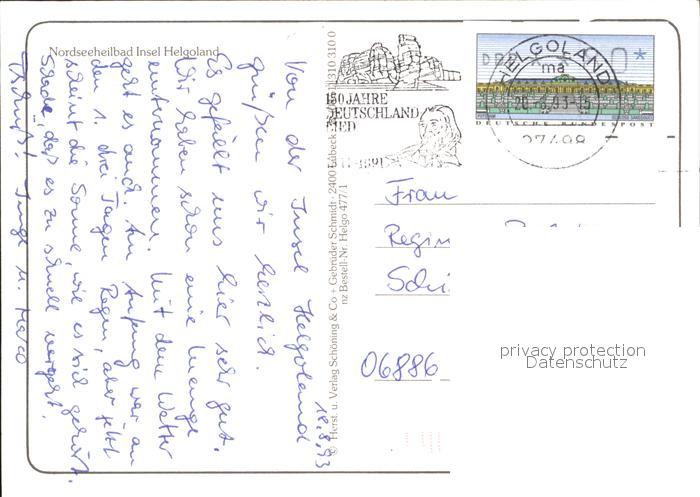 Nordseeheilbad Insel Helgoland
18.8.93
Von der Insel Helgoland
grüßen wir herzlich.
Es gefällt uns hier sehr gut.
Wir haben schon eine Menge
unternommen. Mit dem Wetter
geht es auch. Am Anfang war an
den 1. drei Tagen Regen, aber jetzt
scheint die Sonne, wie es sich gehört.
Schade, daß es so schnell vergeht.
Tschüß! u. Marco
© Herst. u. Verlag Schöning & Co + Gebrüder Schmidt · 2400 Lübeck 310 310 0
nz Bestell-Nr. Helgo 477/1
150 JAHRE
DEUTSCHLAND
LIED
1991
HELGOLAND
27498
DEUTSCHE BUNDESPOST
Frau
Regin
Schi
06886
privacy protection
Datenschutz